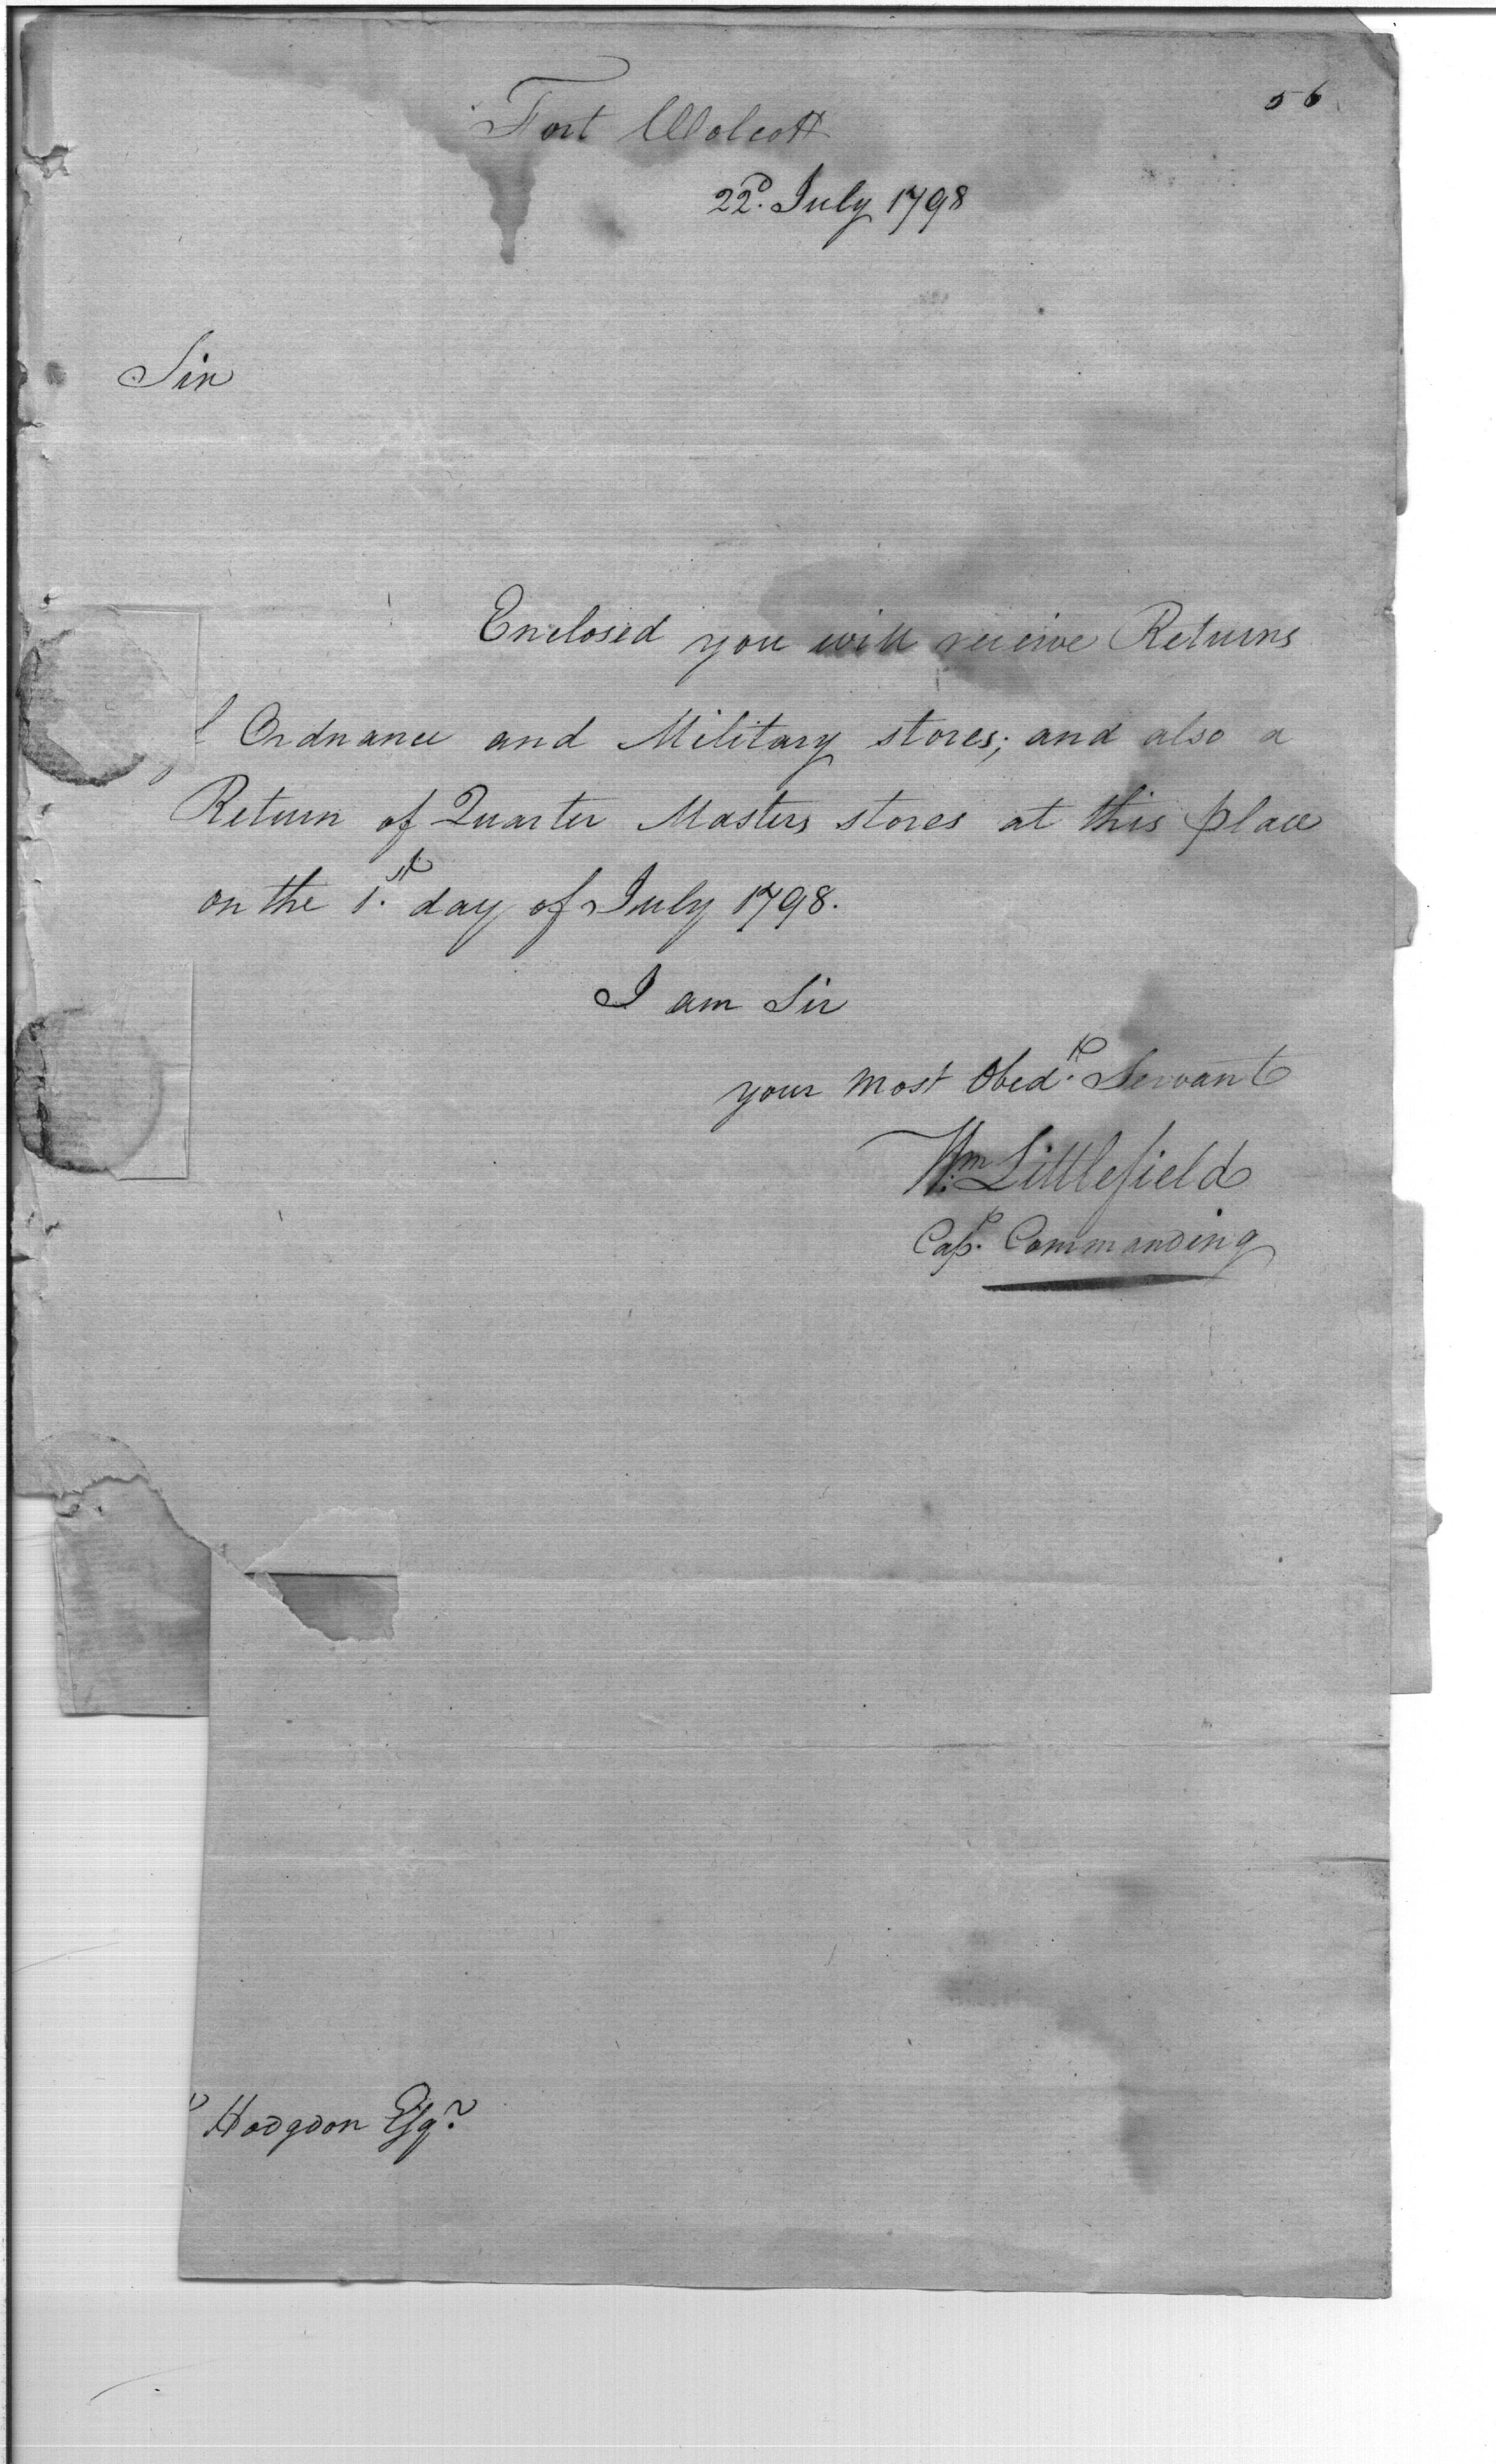 56
Fort Wolcott
22d. July 1798
Sir
Enclosed you will receive Returns
f Ordnance and Military stores; and also a
Return of Quarter Masters stores at this place
on the 1st. day of July 1798.
I am Sir
your most Obedt. Servant
Wm. Littlefield
Capt. Commanding
Hodgdon Esqr.